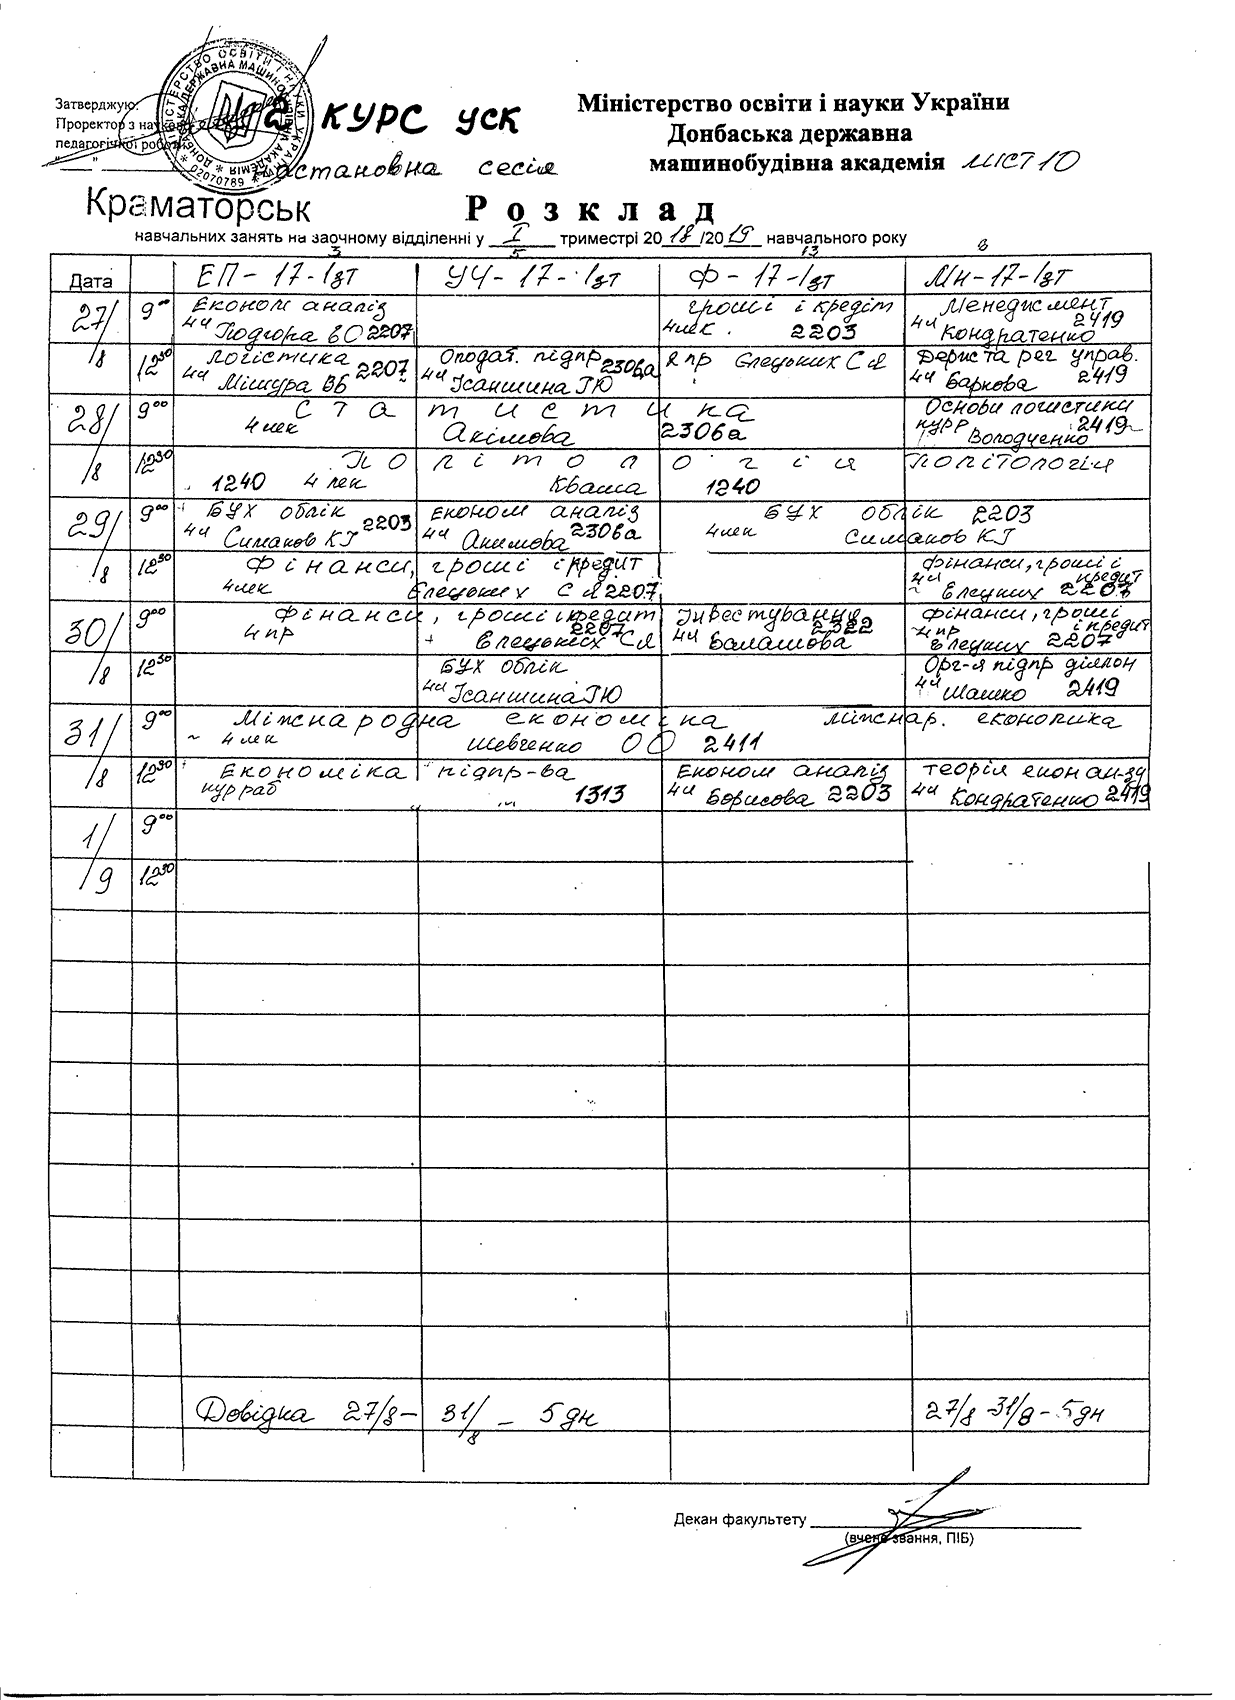 Затверджую:
Проректор з науково-
педагогічної роботи
2 КУРС УСК
Настановна сесія
Міністерство освіти і науки України
Донбаська державна
машинобудівна академія МІСТ 10
Краматорськ
Розклад
навчальних занять на заочному відділенні у I триместрі 2018/2019 навчального року
3 5 13 8
Дата ЕП-17-1зт УЧ-17-1зт Ф-17-1зт МН-17-1зт
27/8 9⁰⁰ Економ аналіз 4ч Подгора ВО 2207
гроші і кредит 4лек. 2203
Менеджмент 4ч 2419 Кондратенко
12³⁰ Логістика 2207 4ч Мішура ВБ
Оподат. підпр 2306а 4ч Ісаншина ГЮ
Єлецьких С Я
Держ та рег управ. 4ч Баркова 2419
28/8 9⁰⁰ Статистика
4 лек Акімова 2306а
Основи логистики курр 2419 Володченко
12³⁰ Політологія Політологія
1240 4 лек Кваша 1240
29/8 9⁰⁰ БУХ облік 2203 4ч Симаков КГ
Економ аналіз 4ч Акимова 2306а
БУХ облік 2203
4лек Симаков КГ
12³⁰ Фінанси, гроші і кредит
4лек Єлецьких С Я 2207
фінанси, гроші і кредит 4ч Єлецких 2207
30/8 9⁰⁰ Фінанси, гроші і кредит
4 пр 2207 Єлецьких СЯ
Інвестування 2322 4ч Балашова
фінанси, гроші і кредит 4пр Єлецких 2207
12³⁰ БУХ облік 4ч Ісаншина ГЮ
Орг-я підпр діялон 4ч Шашко 2419
31/8 9⁰⁰ Міжнародна економіка міжнар. економика
4 лек Шевченко ОО 2411
12³⁰ Економіка підпр-ва
кур раб 1313
Економ аналіз 4ч Борисова 2203
теорія екон ан-зу 4ч Кондратенко 2419
1/9 9⁰⁰
12³⁰
Довідка 27/8 – 31/8 – 5 дн 27/8-31/8-5дн
Декан факультету
(вчене звання, ПІБ)